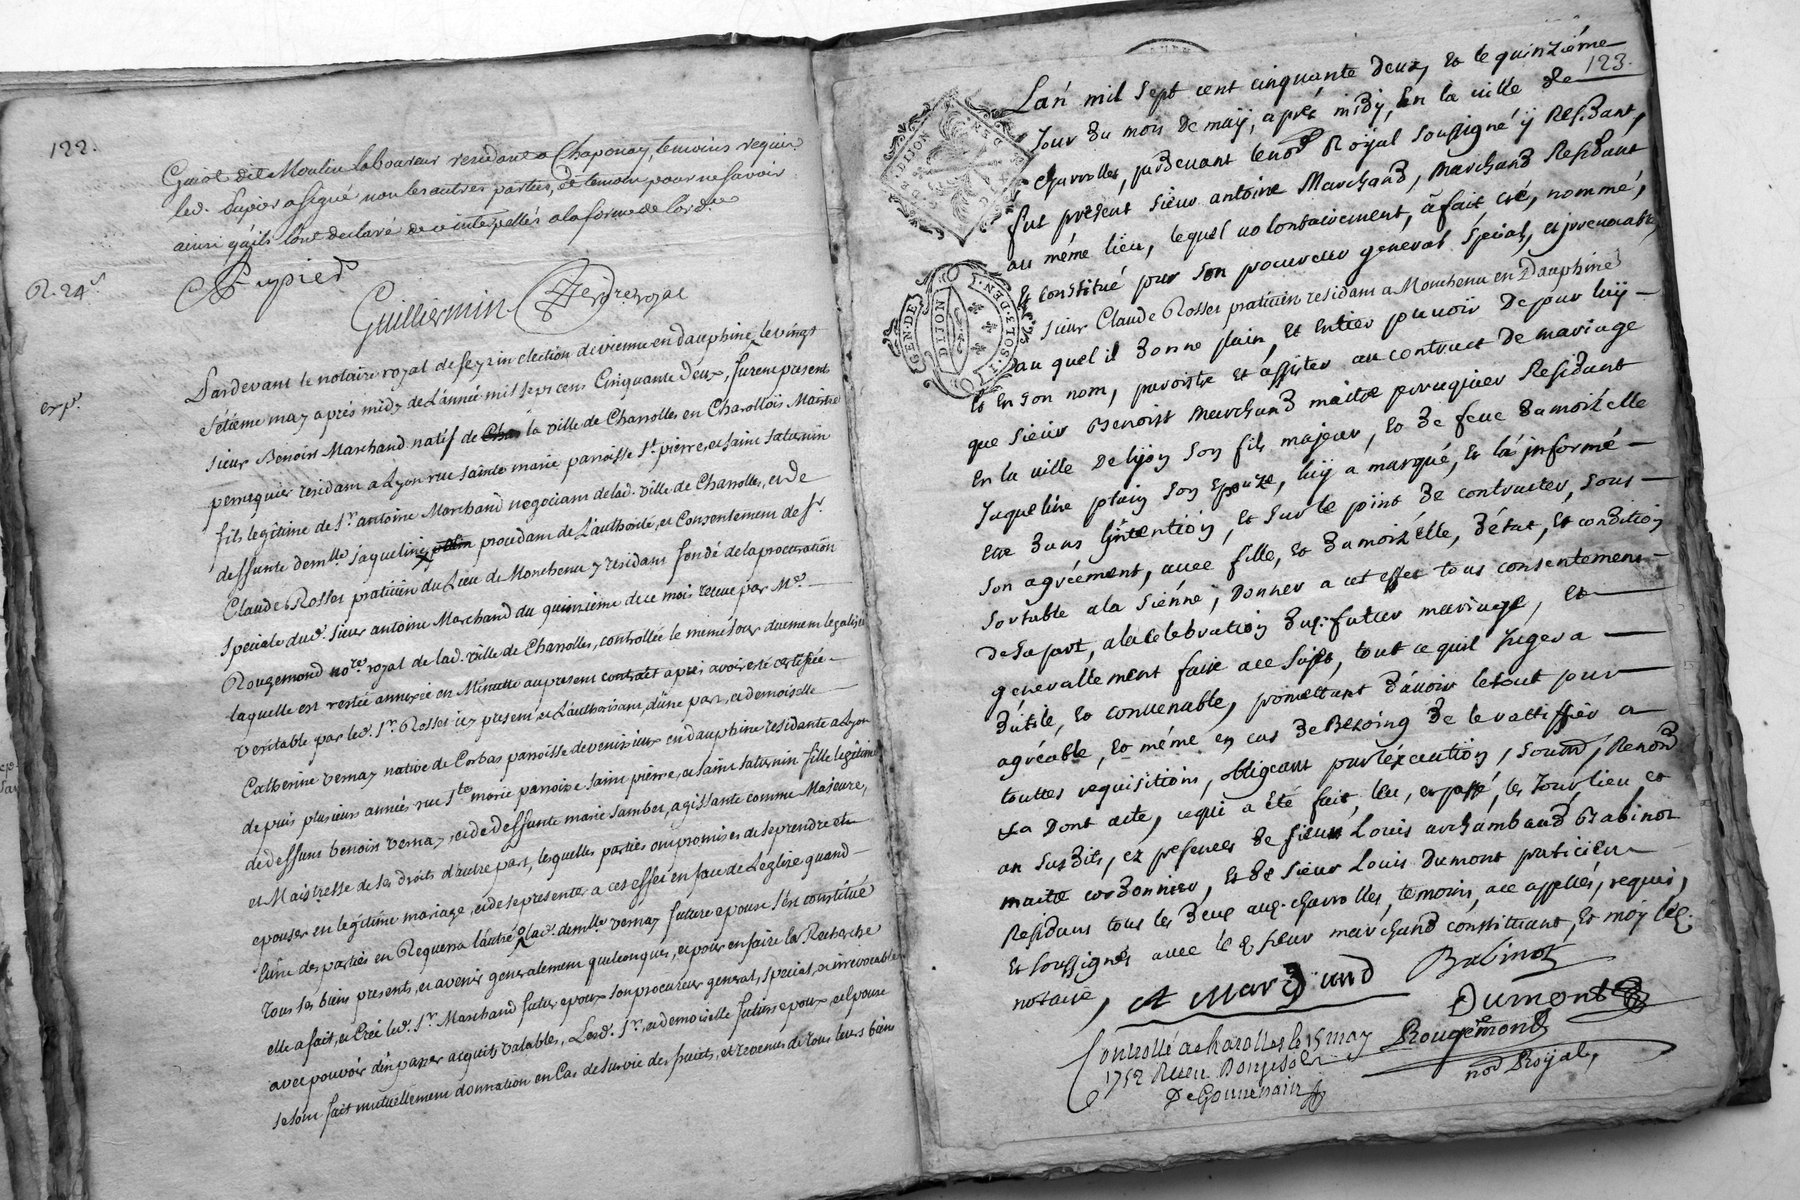 122.
Guiot dit Moulin laboureur residant a Chaponay, temoins requis
led. Pupier asigné non les autres parties, et temoin pour ne savoir
ainsi qu'ils l'ont declaré de ce interpellés a la forme de l'ord.ce
Pupier
R. 24s
Guilliermin
no.re royal
exp.
Pardevant le notaire royal de feyzin election de vienne en dauphiné le vingt
setième may aprés midy de L'année mil sept cens Cinquante deux, furent present
sieur Benoist Marchand natif de la ville de Charrolles en Charollois Maistre
perruquier residant a Lyon rue sainte marie parroisse St. pierre, et saint saturnin
fils legitime de Sr. antoine Marchand negociant de lad. ville de Charrolles, et de
deffunte demlle. jaqueline plain procedant de L'authorité, et Consentement de Sr.
Claude Rosset praticien du Lieu de Monchenu y residant fondé de la procuration
speciale dud. sieur antoine Marchand du quinzième de ce mois reçue par Me.
Rougemond no.re royal de lad. ville de Charrolles, controllée le mime jour duement legalisée
laquelle est restée annexée en Minutte au present contrait aprés avoir eté certifiée
veritable par led. Sr. Rosset icy present, et L'authorisant, d'une part, et demoiselle
Catherine vernay native de Corbas parroisse de venissieux en dauphiné residante a Lyon
depuis plusieurs années rue Ste. marie parroisse saint pierre, et saint saturnin fille legitime
de deffunt benoist vernay, et de deffunte marie Jambet, agissante comme Majeure,
et Maistresse de ses droits d'autre part, lesquelles parties ont promis de se prendre et
epouser en legitime mariage, et de se presenter a cet effet en face de L'eglize quand
l'une des parties en Requerra l'autre, lad. demlle. vernay future epouse s'est constitué
tous ses biens presents, et avenir generalement quelconques, et pour en faire la Recherche
elle a fait, et Créé led. Sr. Marchand futur epoux son procureur general, special, et irrevocable
avec pouvoir d'en passer acquits valables, Lesd. Sr., et demoiselle futurs epoux, et epouse
se sont fait mutuellement donnation en Cas de survie des fruits, et revenus de tous leurs biens
123.
GEN·DE·DIJON
GEN·DE·
DIJON
Lan mil sept cent cinquante deux, et le quinziéme
Jour du mois de maÿ, aprés midÿ, En la ville de
Charrolles, pardevant le nore Roÿal soussigné ÿ Residant,
fut présent sieur antoine Marchand, marchand Residant
au méme lieu, lequel volontairement, a fait creé, nommé,
et constitué pour son procureur general, spécial, et jrrevocable
sieur Claude Rosset praticien residant a Monchenu en Dauphiné
au quel il donne plain, et entier pouvoir de pour luÿ
et en son nom, paroitre et assister au contract de mariage
que sieur Benoist marchand maitre perruquier Residant
En la ville de lÿon son fils majeur, et de feue damoizelle
Jaqueline plain son epouze, luÿ a marqué, et la jnformé
Etre dans l'jntention, et sur le point de contracter, sous
son agréement, avec fille, et damoizelle, d'état, et condition
sortable a la siénne; donner a cet effet tous consentemens
de sa part, a la celebration dud. futur mariage, et
generallement faire a ce sujet, tout ce qu'il Jugera
d'utile, et convenable, promettant d'avoir le tout pour
agréable, et méme en cas de Bezoing de le rattiffier a
touttes requisitions, obligeant pour l'éxécution, soumd, Renond
&a Dont acte, ce qui a été fait, leu, et passé, les Jour, lieu, et
an susdits, ez presences de sieur Louis archambaud Babinot
maitre cordonnier, et de sieur Louis Dumont praticien
Residans tous les deux aud. charrolles, témoins, a ce appellés, requis,
Et soussignés avec led. sieur marchand constituant, et moÿ led.
notaire,
A Marchand
Babinot
Dumont
Rougemond
nore Roÿal,
Controllé a charolles le 15 may
1752 Reçu
De Gouvenain